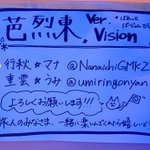 芭烈東 Ver. Vision
行秋★マナ @NanaichiGMKZ
重雲★うみ @umiringonyan
よろしくお願いします!!!
旅人のみなさま、一緒に楽しんでくれたら嬉しいです